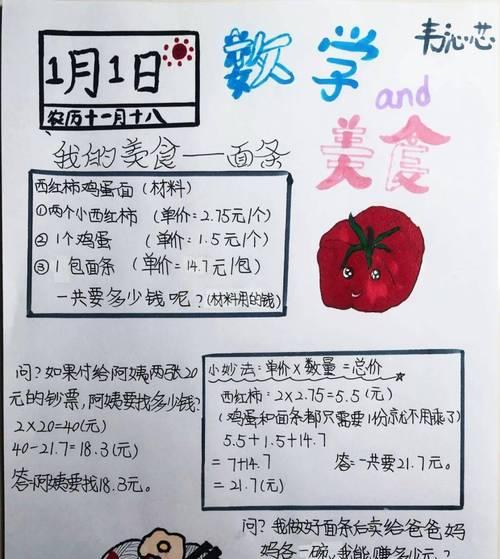 1月1日
农历十一月十八
数学
and
美食
韦沁芯
我的美食——面条
西红柿鸡蛋面（材料）
①两个小西红柿（单价：2.75元/个）
②1个鸡蛋（单价：1.5元/个）
③1包面条（单价：14.7元/包）
一共要多少钱呢？（材料用的钱）
问？如果付给阿姨两张20
元的钞票，阿姨要找多少钱？
2×20=40(元)
40-21.7=18.3(元)
答：阿姨要找18.3元。
小妙法：单价×数量=总价
西红柿：2×2.75=5.5(元)
(鸡蛋和面条都只需要1份就不用乘了)
5.5+1.5+14.7
=7+14.7
=21.7(元)
答：一共要21.7元。
问？我做好面条后卖给爸爸妈
妈各一碗，我能赚多少元？